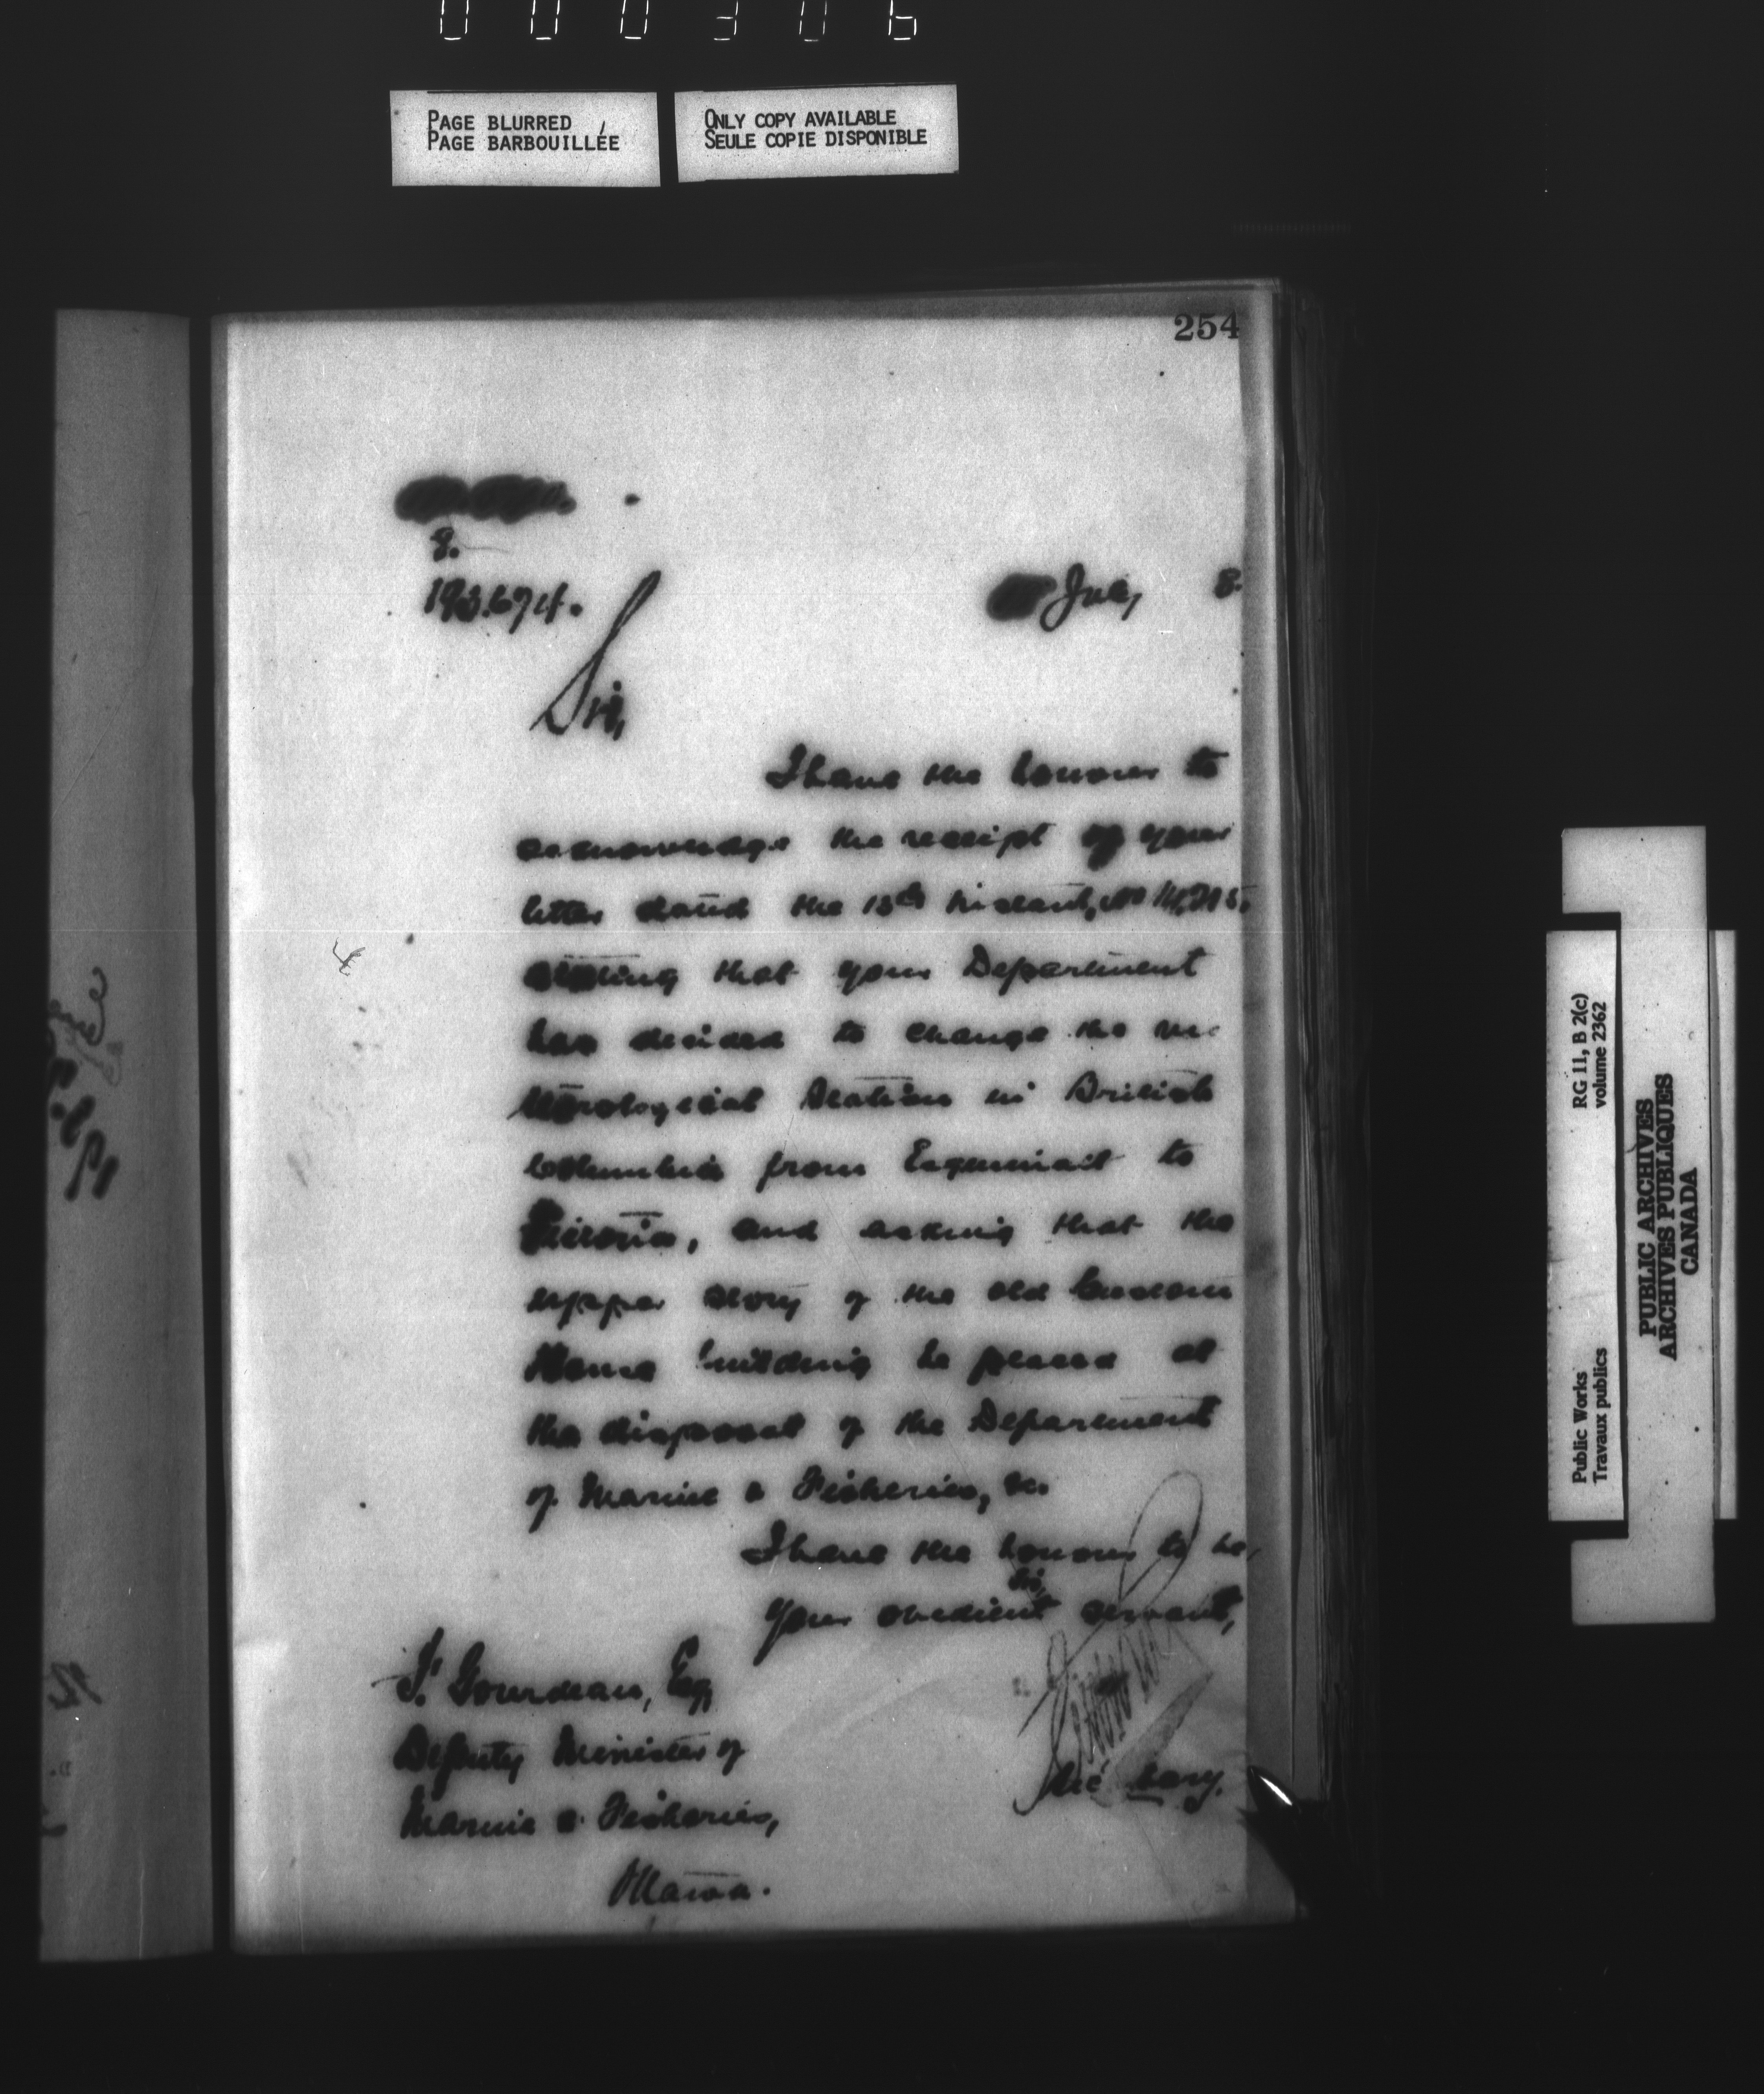 000306
PAGE BLURRED
PAGE BARBOUILLÉE
ONLY COPY AVAILABLE
SEULE COPIE DISPONIBLE
254
8.
July 8.
Sir,
I have the honour to
acknowledge the receipt of your
letter dated the 13th instant, No
stating that your Department
has decided to change the me-
teorological Station in British
Columbia from Esquimalt to
Victoria, and asking that the
upper story of the old Custom
House building be placed at
the disposal of the Department
of Marine & Fisheries, &c.
I have the honour to be,
Sir,
Your obedient servant,
Secretary.
F. Gourdeau, Esq
Deputy Minister of
Marine & Fisheries,
Ottawa.
RG 11, B 2(c)
volume 2362
Public Works
Travaux publics
PUBLIC ARCHIVES
ARCHIVES PUBLIQUES
CANADA